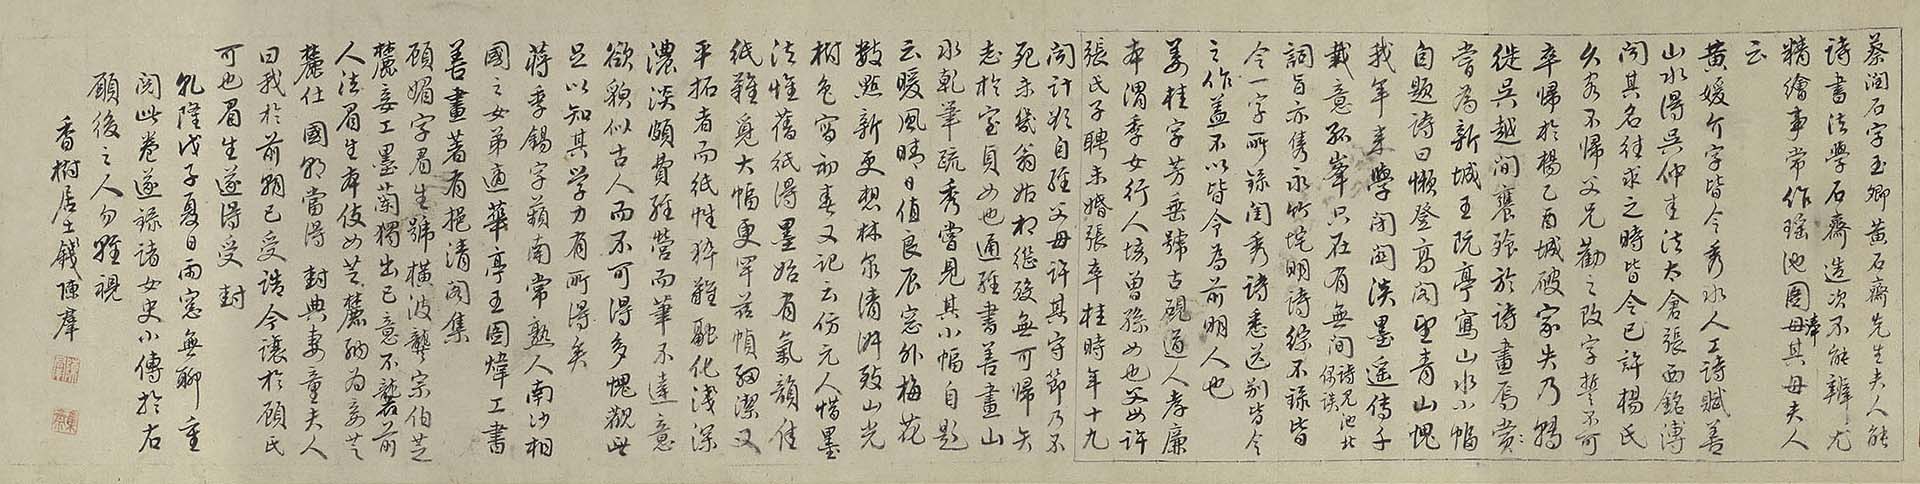 蔡潤石字玉卿黄石齋先生夫人能
詩書法學石齋造次不能辨尤
精繪事常作瑤池圖奉母其母夫人
云
黄媛介字皆令秀水人工詩賦善
山水得吳仲圭法太倉張西銘溥
聞其名往求之時皆令已許楊氏
久客不歸父兄勸之改字誓不可
卒歸於楊乙酉城破家失乃轉
徙吳越間寠殆於詩畫焉嘗
嘗為新城王阮亭寫山水小幅
自題詩曰懶登高閣望青山愧
我年來學閉關淡墨遥傳千
載意孤峯只在有無間詩見池北偶談
詞旨亦雋永竹垞明詩綜不錄皆
令一字所錄閨秀詩悉送别皆令
之作蓋不以皆令為前明人也
姜桂字芳垂號古硯道人孝廉
本渭季女行人垓曾孫女也父母許
張氏子聘未婚張卒桂時年十九
聞訃欲自經父母許其守節乃不
死未幾翁姑相繼殁無可歸矢
志於室貞女也通經書善畫山
水乾筆疏秀嘗見其小幅自題
云暖風晴日值良辰窓外梅花
數點新更想林泉清湃致山光
樹色寫初春又記云仿元人惜墨
法惟舊紙得墨始有氣韻佳
紙難覓大幅更罕茲幀細潔又
平拓者而紙性猝難融化淺深
濃淡頗費經營而筆不達意
欲貌似古人而不可得多愧觀此
足以知其学力有所得矣
蔣季錫字蘋南常熟人南沙相
國之女弟適華亭王圖煒工書
善畫著有挹清閣集
顧媚字眉生號横波龔宗伯芝
麓妾工墨蘭獨出己意不襲前
人法眉生本伎女芝麓納為妾芝
麓仕國朝當得封典妻童夫人
曰我於前朝已受誥今讓於顧氏
可也眉生遂得受封
乾隆戊子夏日雨窓無聊重
閱此卷遂錄諸女史小傳於右
顧後之人勿輕視
香樹居士錢陳羣